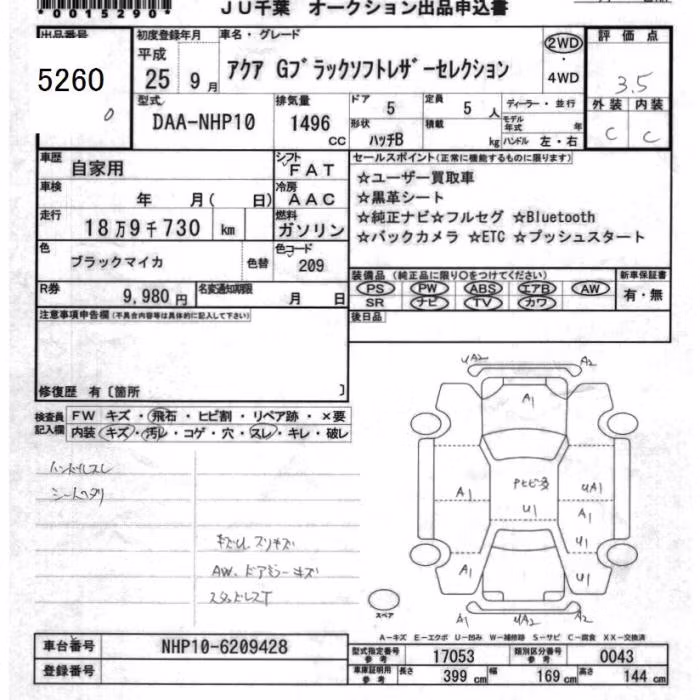 *0015290*
JU千葉 オークション出品申込書
出品番号
5260
0
初度登録年月
平成
25 9月
車名・グレード
アクア Gブラックソフトレザーセレクション
2WD
・
4WD
評価点
3.5
外装 内装
C C
型式
DAA-NHP10
排気量
1496
CC
ドア 5
定員 5 人
ディーラー・並行
形状 ハッチB
積載 kg
モデル年式 年
ハンドル 左・右
車歴 自家用
シフト FAT
車検 年 月( 日)
冷房 AAC
走行 18万9千730 km
燃料 ガソリン
色 ブラックマイカ 色替
色コード 209
R券 9,980円
名変通知期限 月 日
セールスポイント(正常に機能するものに限ります)
☆ユーザー買取車
☆黒革シート
☆純正ナビ☆フルセグ ☆Bluetooth
☆バックカメラ ☆ETC ☆プッシュスタート
装備品 (純正品に限り○をつけてください)
PS PW ABS エアB AW
SR ナビ TV カワ
新車保証書
有・無
後日品
注意事項申告欄(不具合内容等は具体的に記入して下さい)
修復歴 有〔箇所 〕
検査員記入欄
FW キズ・飛石・ヒビ割・リペア跡・×要
内装 キズ・汚レ・コゲ・穴・スレ・キレ・破レ
ハンドルスレ
シートヘタリ
キズU、スリキズ
AW、ドアミラーキズ
スタッドレスT
UA2 A2
A1
A1
Pヒビ多
U1
UA1
A1
U1
A1
U1
A1 UA2 A2
スペア
A-キズ E-エクボ U-凹み W-補修跡 S-サビ C-腐食 XX-交換済
車台番号 NHP10-6209428
登録番号
型式指定番号 参考 17053
類別区分番号 参考 0043
車庫証明用 参考 長さ 399 cm 幅 169 cm 高さ 144 cm